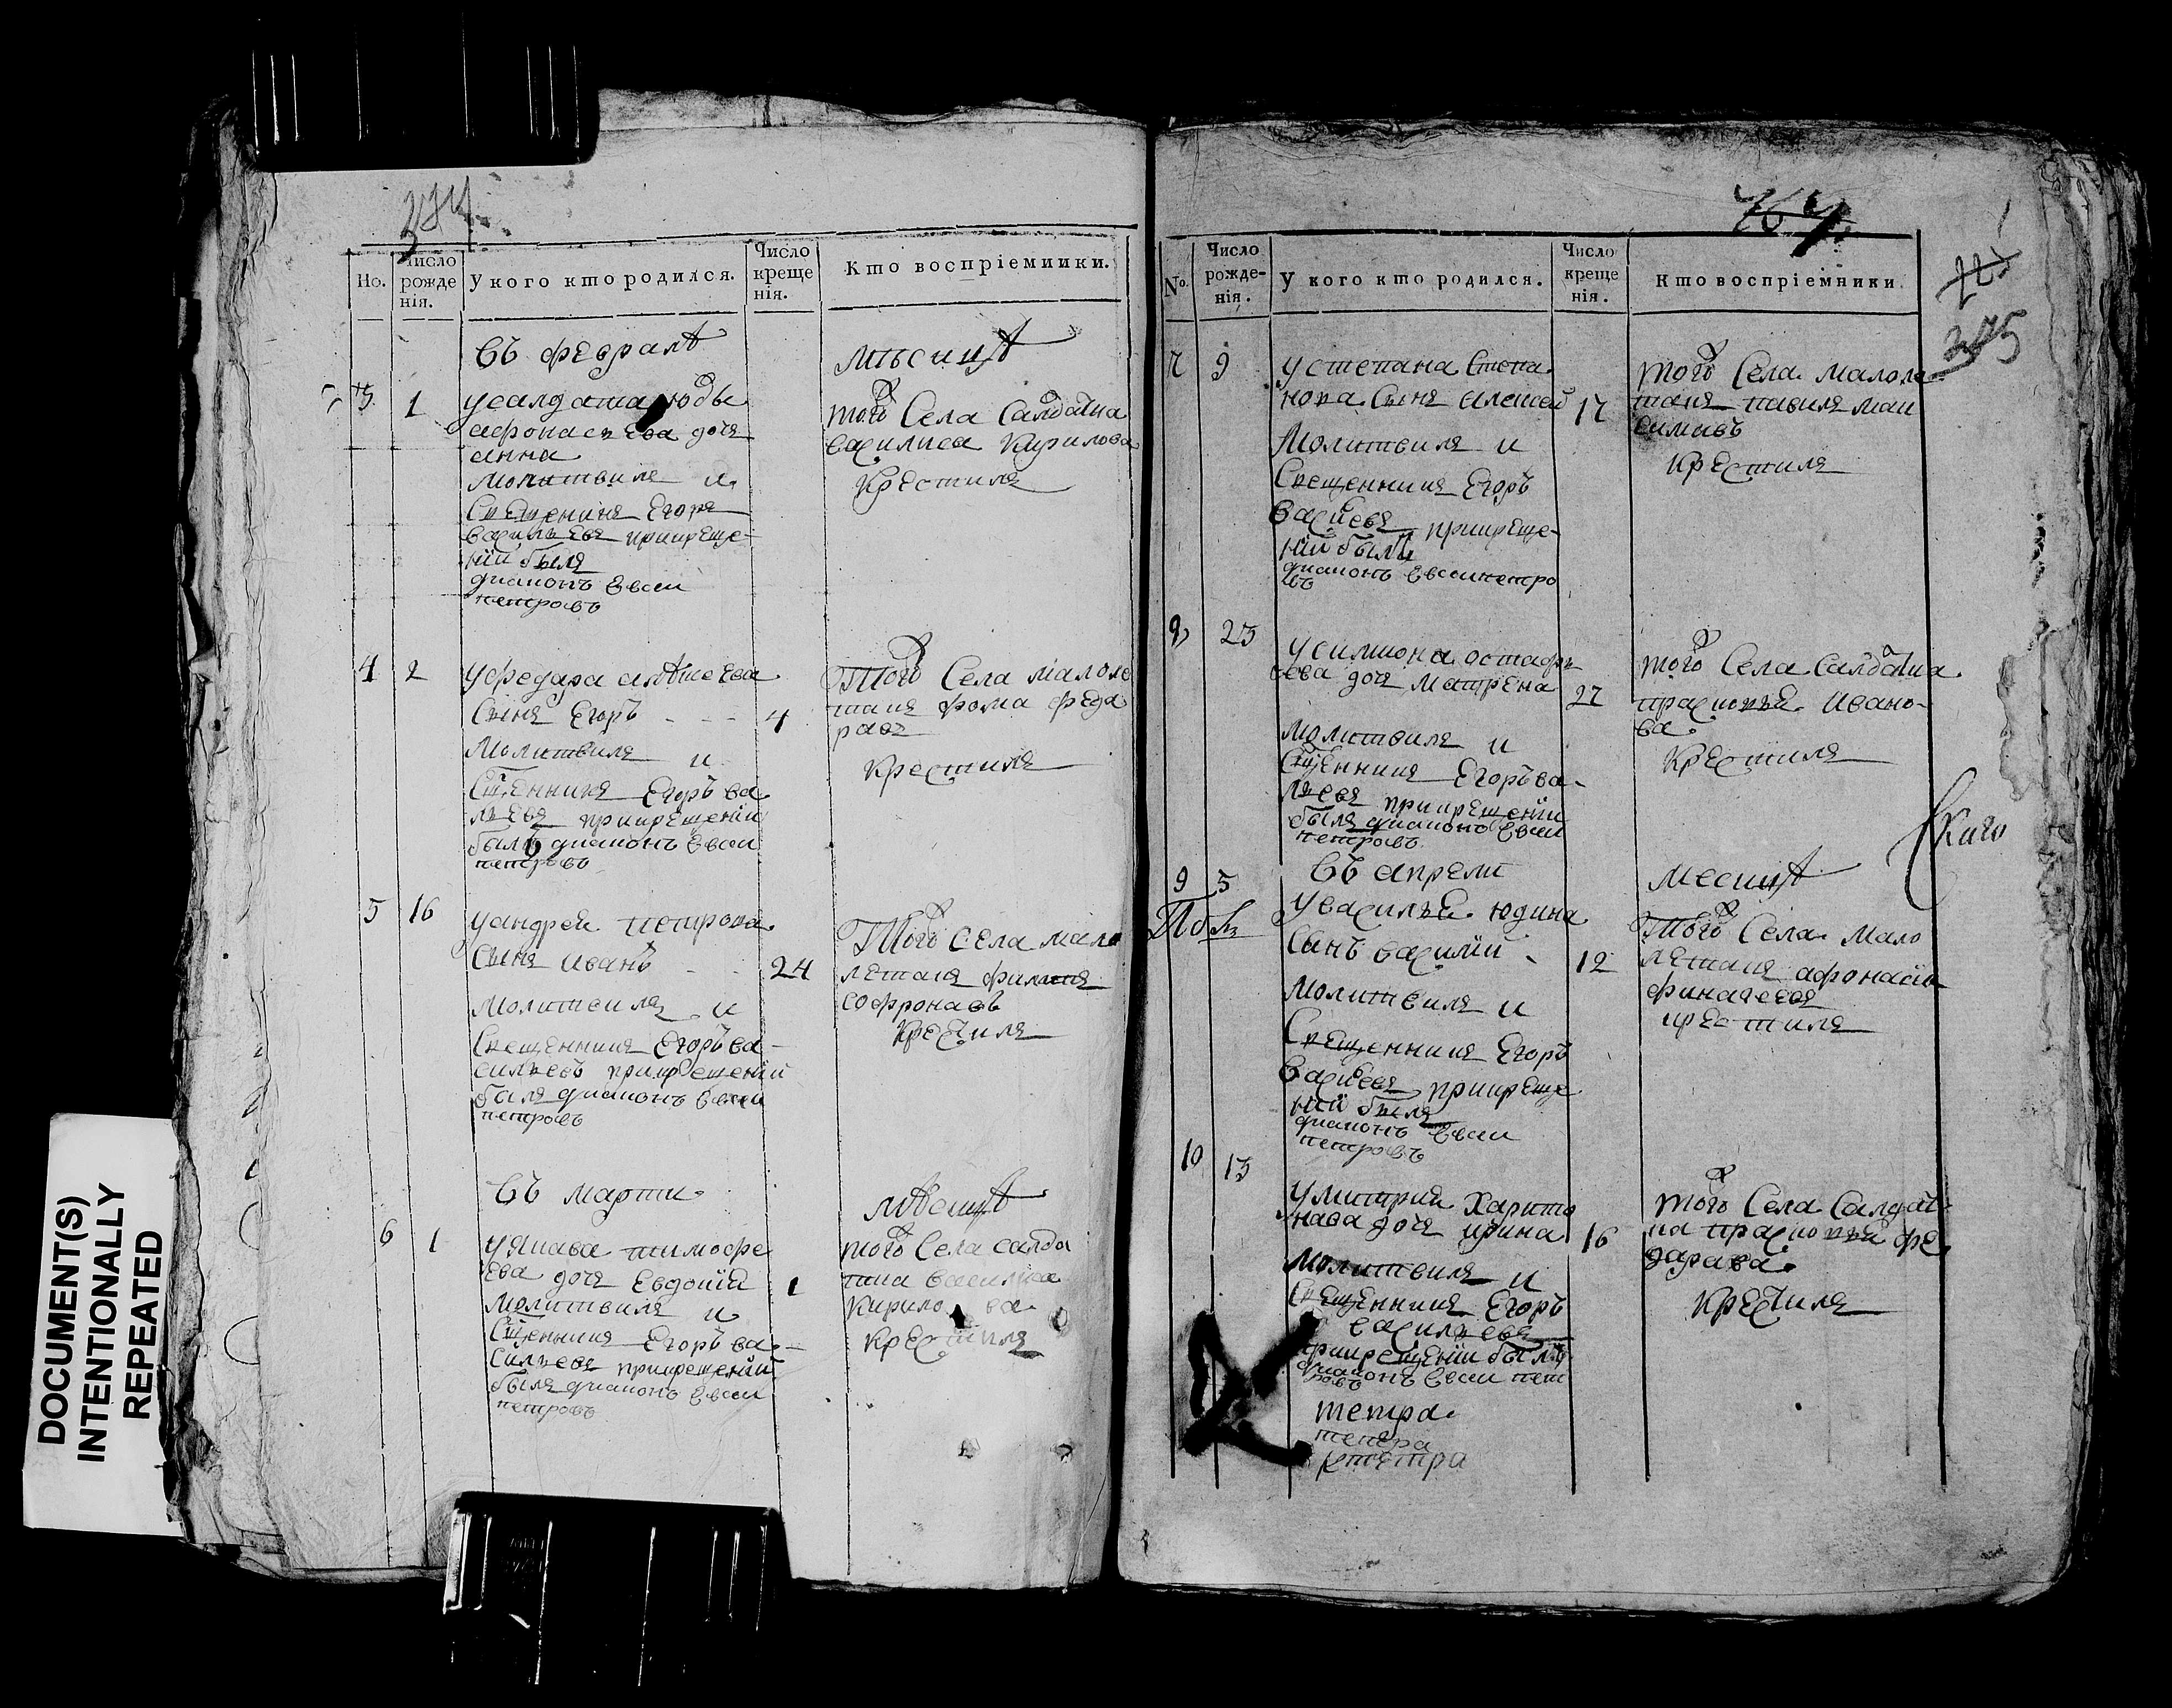 374
Но.
Число рожде нія.
У кого кто родился.
Число креще нія.
Кто воспріемники.
въ февралѣ
мѣсицѣ
3
1
усалдата юды
афонасъева доч
анна
молитвилъ и
Свещеникъ Егоръ
василъевъ прикреще-
нїи былъ
диаконъ Евсеи
петровъ
того Села Салдатка
василиса Кирилова
Крестилъ
4
2
уфедара алѣѯеева
Сынъ Егоръ
4
Молитвилъ и
Сщенникъ Егоръ ва
лъевъ прикрещенїи
былъ диаконъ Евсеи
петровъ
Того Села малоле
такъ фома феда
равъ
Крестилъ
5
16
уандрея петрова
Сынъ Иванъ
24
Молитвилъ и
Свещенникъ Егоръ ва-
силъевъ прикрещенїи
былъ диаконъ Евсеи
петровъ
Того Села мало
летакъ филипъ
софронавъ
Крестилъ
въ марти
мѣсицѣ
6
1
уякава тимофе
ева доч Евдокїя
1
Молитвилъ и
Сщенникъ Егоръ ва-
силъевъ прикрещенїи
былъ диаконъ Евсеи
петровъ
того Села салда
тка василиса
Кирилова
Крестилъ
767
375
No.
Число рожде- нія.
У кого кто родился.
Число креще нія.
Кто воспріемники.
7
9
устепана Степа
нова Сынъ алексей
17
Молитвилъ и
Свещенникъ Егоръ
васиевъ прикреще-
нїи былъ
диаконъ Евсеи петро
въ
того Села малоле
такъ павилъ мак
симавъ
Крестилъ
23
усимиона остафъ
ева доч матрена
27
Молитвилъ и
Сщенникъ Егоръ ва-
лъевъ прикрещенїи
былъ диаконъ Евсеи
петровъ
того Села Салдатка
прасковъя Ивано-
ва
Крестилъ
Скаго
въ апрели
месицѣ
9
5
увасилъя юдина
Сынъ василїй
12
Молитвилъ и
Свещенникъ Егоръ
васиевъ прикреще
нїи былъ
диаконъ Евсеи
петровъ
Того Села мало
летакъ афонасїи
финагеевъ
крестилъ
10
13
Умитрия Харито
нава доч ирина
16
Молитвилъ и
Свещенникъ Егоръ
василъевъ
прикрещенїи былъ
диаконъ Евсеи пет
ровъ
того Села Салдат
ка прасковъя фе
дарава
Крестилъ
DOCUMENT(S)
INTENTIONALLY
REPEATED